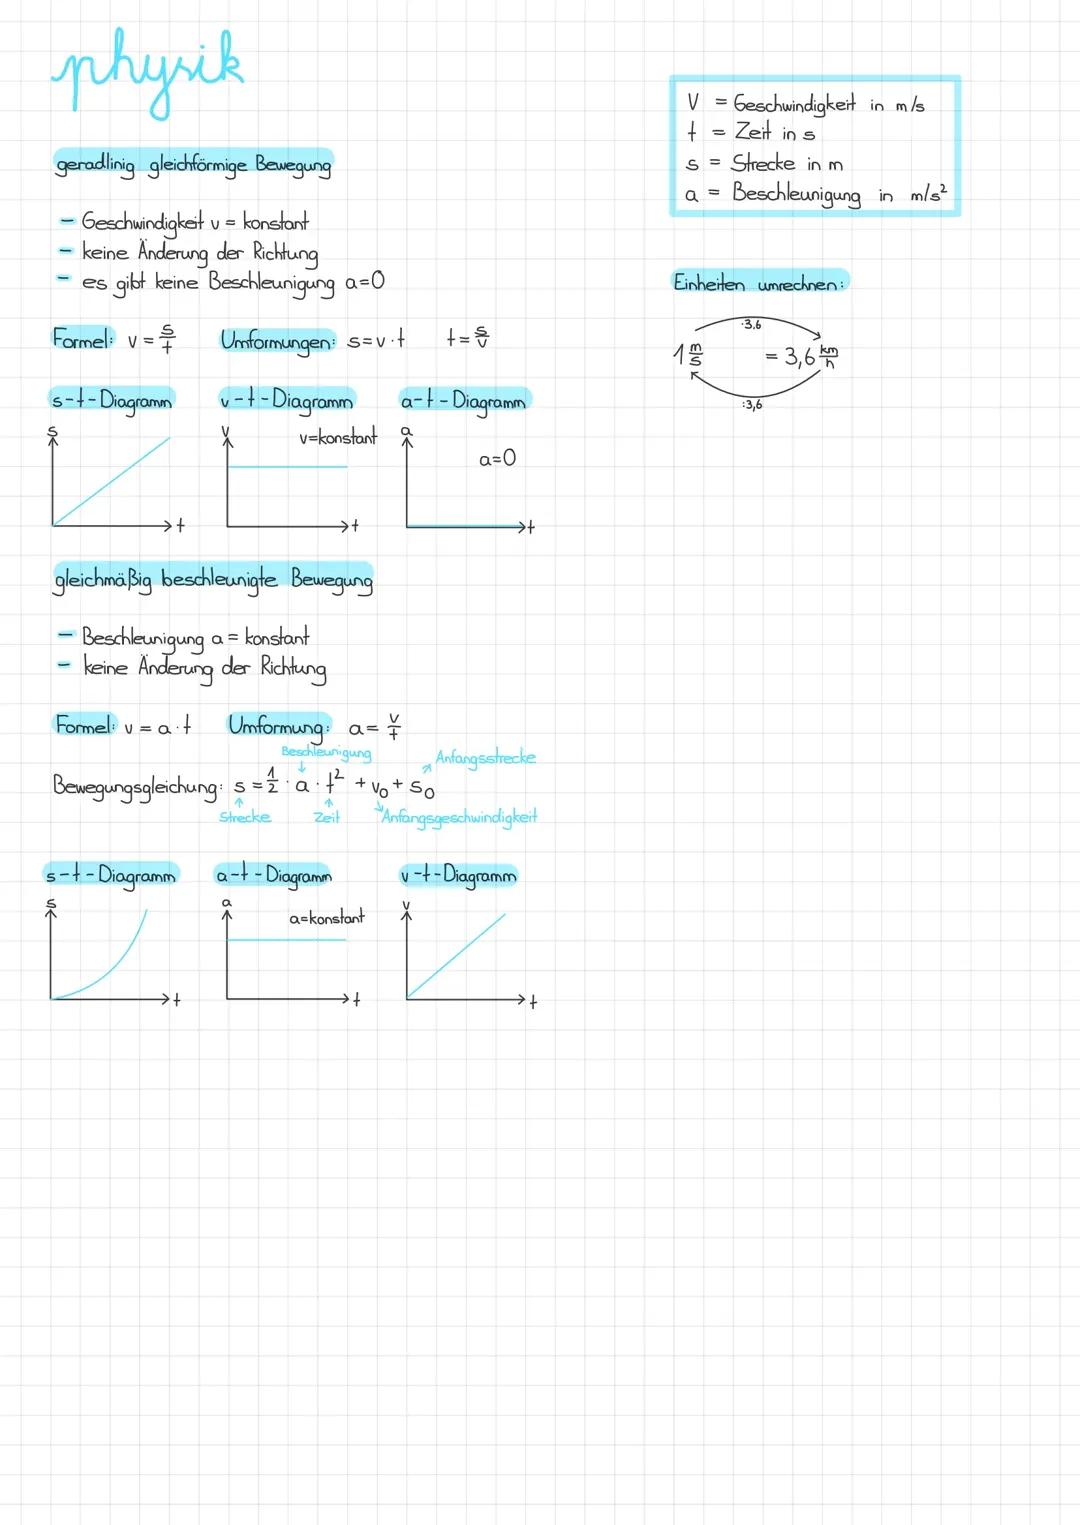 physik
V = Geschwindigkeit in m/s
t = Zeit in s
s = Strecke in m
a = Beschleunigung in m/s²
geradlinig gleichförmige Bewegung
- Geschwindigkeit v = konstant
- keine Änderung der Richtung
- es gibt keine Beschleunigung a=0
Einheiten umrechnen:
·3,6
1 m/s = 3,6 km/h
:3,6
Formel: v = s/t Umformungen: s=v·t t=s/v
s-t-Diagramm v-t-Diagramm a-t-Diagramm
s v v=konstant a
a=0
t t t
gleichmäßig beschleunigte Bewegung
- Beschleunigung a = konstant
- keine Änderung der Richtung
Formel: v = a·t Umformung: a = v/t
Beschleunigung Anfangsstrecke
Bewegungsgleichung: s = 1/2 · a · t² + v₀ + s₀
Strecke Zeit Anfangsgeschwindigkeit
s-t-Diagramm a-t-Diagramm v-t-Diagramm
s a v
a=konstant
t t t